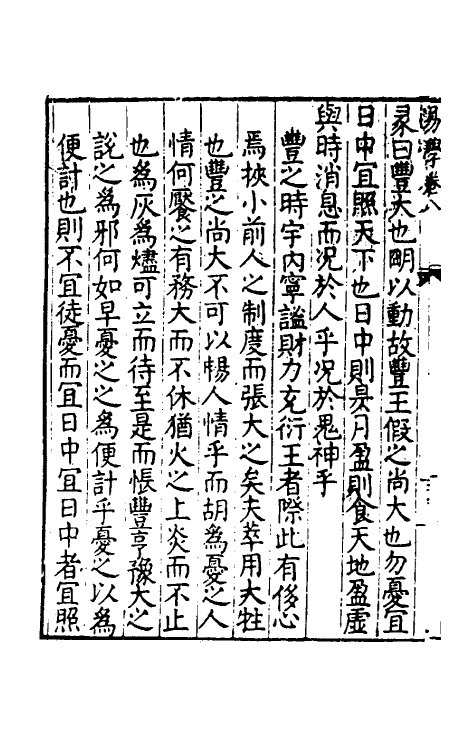 易學卷八
彖曰豐大也明以動故豐王假之尚大也勿憂宜
日中宜照天下也日中則昃月盈則食天地盈虛
與時消息而况於人乎况於鬼神乎
豐之時宇內寧謐財力充衍王者際此有侈心
焉挾小前人之制度而張大之矣夫萃用大牲
也豐之尚大不可以愓人情乎而胡為憂之人
情何饜之有務大而不休猶火之上炎而不止
也為灰為燼可立而待至是而悵豐亨豫大之
說之為邪何如早憂之之為便計乎憂之以為
便計也則不宜徒憂而宜日中宜日中者宜照